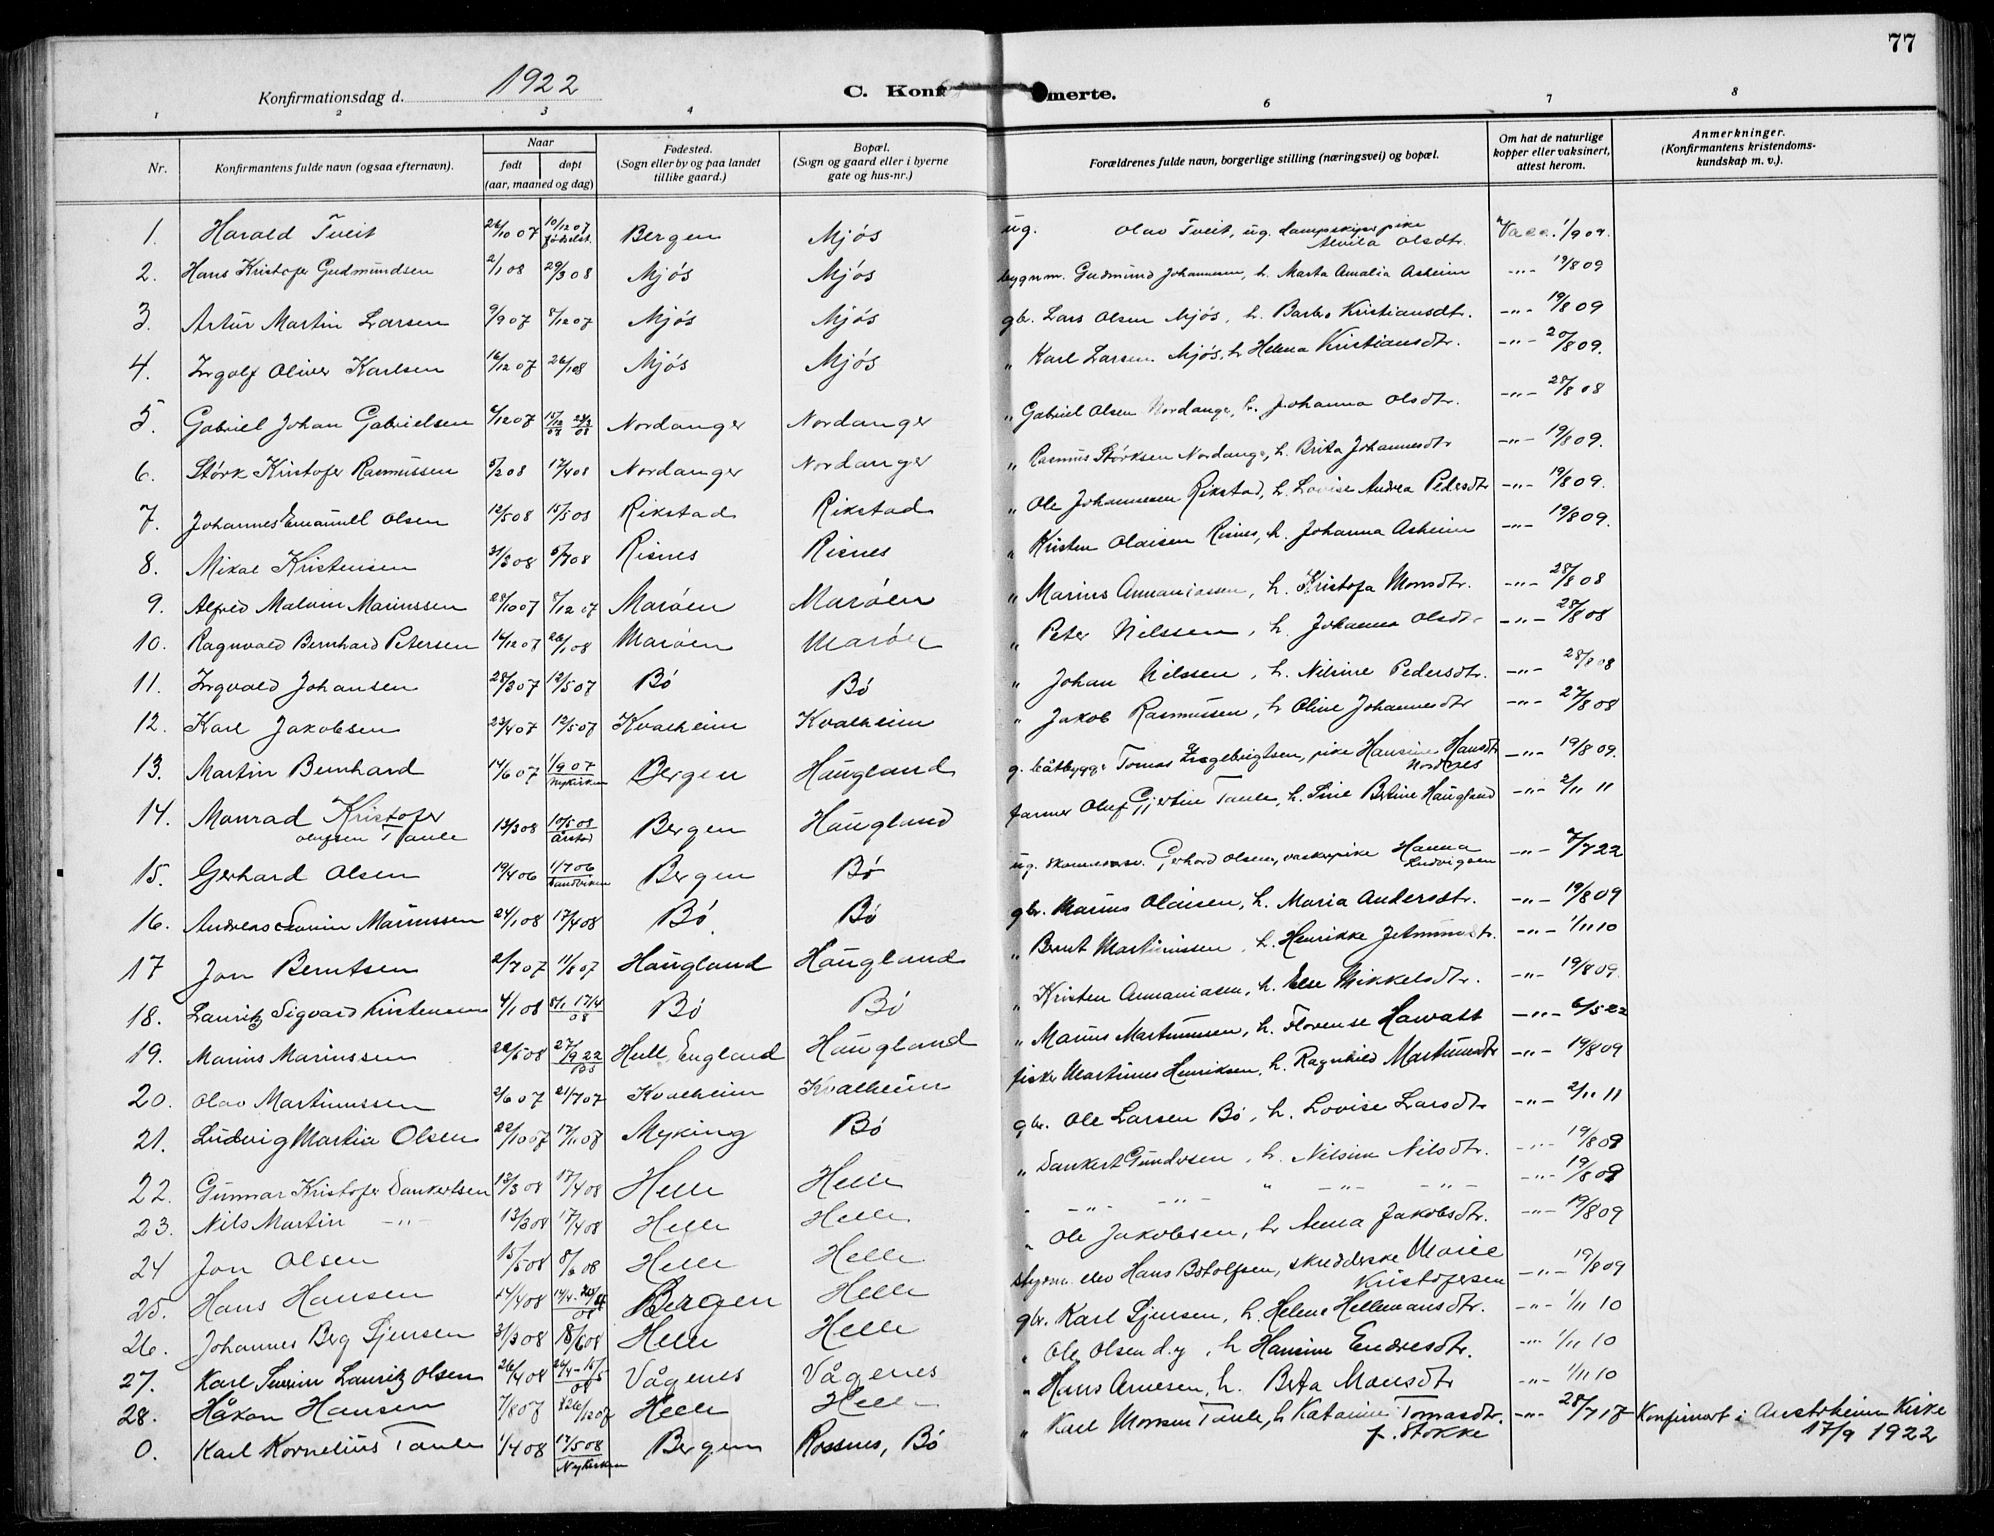 77
Konfirmationsdag d. 1922
C. Konf merte.
1 2 3 4 6 7 8
Nr.
Konfirmantens fulde navn (ogsaa efternavn).
Naar
født døpt
(aar, maaned og dag)
Fødested.
(Sogn eller by og paa landet
tillike gaard.)
Bopæl.
(Sogn og gaard eller i byerne
gate og hus-nr.)
Forældrenes fulde navn, borgerlige stilling (næringsvei) og bopæl.
Om hat de naturlige
kopper eller vaksinert,
attest herom.
Anmerkninger.
(Konfirmantens kristendoms-
kundskap m. v.).
1. Harald Tveit 26/10 07 10/12 07 Bergen Mjøs ug. Olav Tveit, ug. pike Olsdtr. Vacc. 1/9 09.
2. Hans Kristofer Gudmundsen 2/1 08 29/3 08 Mjøs Mjøs bygnm. Gudmund Johannesen, h. Marta Amalia Asheim -"- 19/8 09
3. Artur Martin Larsen 9/9 07 8/12 07 Mjøs Mjøs gbr. Lars Olsen Mjøs, h. Barbro Kristiansdtr. -"- 19/8 09
4. Ingolf Oliver Karlsen 16/12 07 26/1 08 Mjøs Mjøs " Karl Larsen Mjøs, h. Helena Kristiansdtr. -"- 20/8 09.
5. Gabriel Johan Gabrielsen /12 07 Nordanger Nordanger " Gabriel Olsen Nordanger, h. Johanna Olsdtr. -"- 28/8 08
6. Størk Kristofer Rasmussen 5/2 08 17/4 08 Nordanger Nordanger " Rasmus Størksen Nordanger, h. Brita Johannesdtr -"- 19/8 09.
7. Johannes Emanuel Olsen 12/5 08 15/5 08 Rikstad Rikstad " Ole Johannesen Rikstad, h. Lovise Andrea Pedersdtr -"- 19/8 09.
8. Mikal Kristensen 31/3 08 5/7 08 Risnes Risnes " Kristen Olaisen Risnes, h. Johanna Asheim -"- 19/8 09.
9. Alfred Malvin Mariussen 28/10 07 8/12 07 Marøen Marøen " Marius Annaniassen, h. Kristofa Monsdtr. -"- 28/8 08
10. Ragnvald Bernhard Petersen 14/12 07 26/1 08 Marøen Marøen " Peter Nilssen, h. Johanna Olsdtr -"- 28/8 08
11. Ingvald Johansen 28/3 07 12/5 07 Bø Bø " Johan Nilssen, h. Nilsine Pedersdtr. -"- 28/8 08
12. Karl Jakobsen 23/4 07 12/5 07 Kvalheim Kvalheim " Jakob Rasmussen, h. Olive Johannesdtr -"- 27/8 08
13. Martin Bernhard 14/6 07 1/9 07 Nykirken Bergen Haugland g. båtbygg. Tomas Ingebrigtsen, pike Hansine Hansdtr Nordnes -"- 19/8 09.
14. Monrad Kristofer Olufsen Taule 13/3 08 10/5 08 Årstad Bergen Haugland farmer Oluf Gjertin Taule, h. Sine Bertine Haugland -"- 2/11 11
15. Gerhard Olsen 19/4 06 1/7 06 Sandviken Bergen Bø ug. Gerhard Olsen, vaskepike Hanna Ludvigsen -"- 7/7 22
16. Andreas Mariussen 24/1 08 17/4 08 Bø Bø gbr. Marius Olaisen, h. Maria Andersdtr. -"- 19/8 09
17 Jon Berntsen 2/7 07 11/8 07 Haugland Haugland " Bernt Martinussen, h. Henrikke Jetmundsdtr. -"- 1/11 10
18. Lauritz Sigvard Kristensen 4/1 08 5/1 17/4 08 Bø Bø " Kristen Annaniasen, h. Else Mikkelsdtr. -"- 19/8 09.
19. Marius Mariussen 22/5 08 27/9 22 Hull, England Haugland " Marius Martinussen, h. Florense -"- 6/5 22
20. Olav Martinussen 2/6 07 21/7 07 Kvalheim Kvalheim fisker Martinus Henriksen, h. Ragnhild -"- 19/8 09
21. Ludvig Martin Olsen 22/10 07 17/11 07 Myking Bø gbr. Ole Larsen Bø, h. Lovise Larsdtr -"- 2/11 11
22. Gunnar Kristofer Dankertsen 13/3 08 17/4 08 Helle Helle " Dankert Gundersen, h. Nilsine Nilsdtr. -"- 19/8 09
23. Nils Martin -"- 13/3 08 17/4 08 Helle Helle -"- " -"- -"- -"- 19/8 09
24 Jon Olsen 15/5 08 8/6 08 Helle Helle " Ole Jakobsen, h. Anna Jakobsdtr. -"- 19/8 09
25. Hans Hansen 14/4 08 Bergen Helle styrm. elev Hans Botolfsen, Marie Kristofersen -"- 19/8 09
26. Johannes Berg Sjursen 31/3 08 18/6 08 Helle Helle gbr. Karl Sjursen, h. Helene Hellemansdtr. -"- 1/11 10
27. Karl Severin Lauritz Olsen 26/4 08 26/4 - 15/5 08 Vågenes Vågenes " Ole Olsen d.y, h Hansine Endresdtr. -"- 1/11 10
28. Håkon Hansen 7/8 07 Helle Helle " Hans Arnesen, h. Berta Monsdtr -"- 1/11 10
0. Karl Kornelius Taule 1/4 08 17/5 08 Nykirken Bergen Rossnes, Bø " Karl Monsen Taule, h Katarina Tomasdtr. f. Stokke -"- 28/7 17 Konfirmert i Austrheim Kirke
17/9 1922